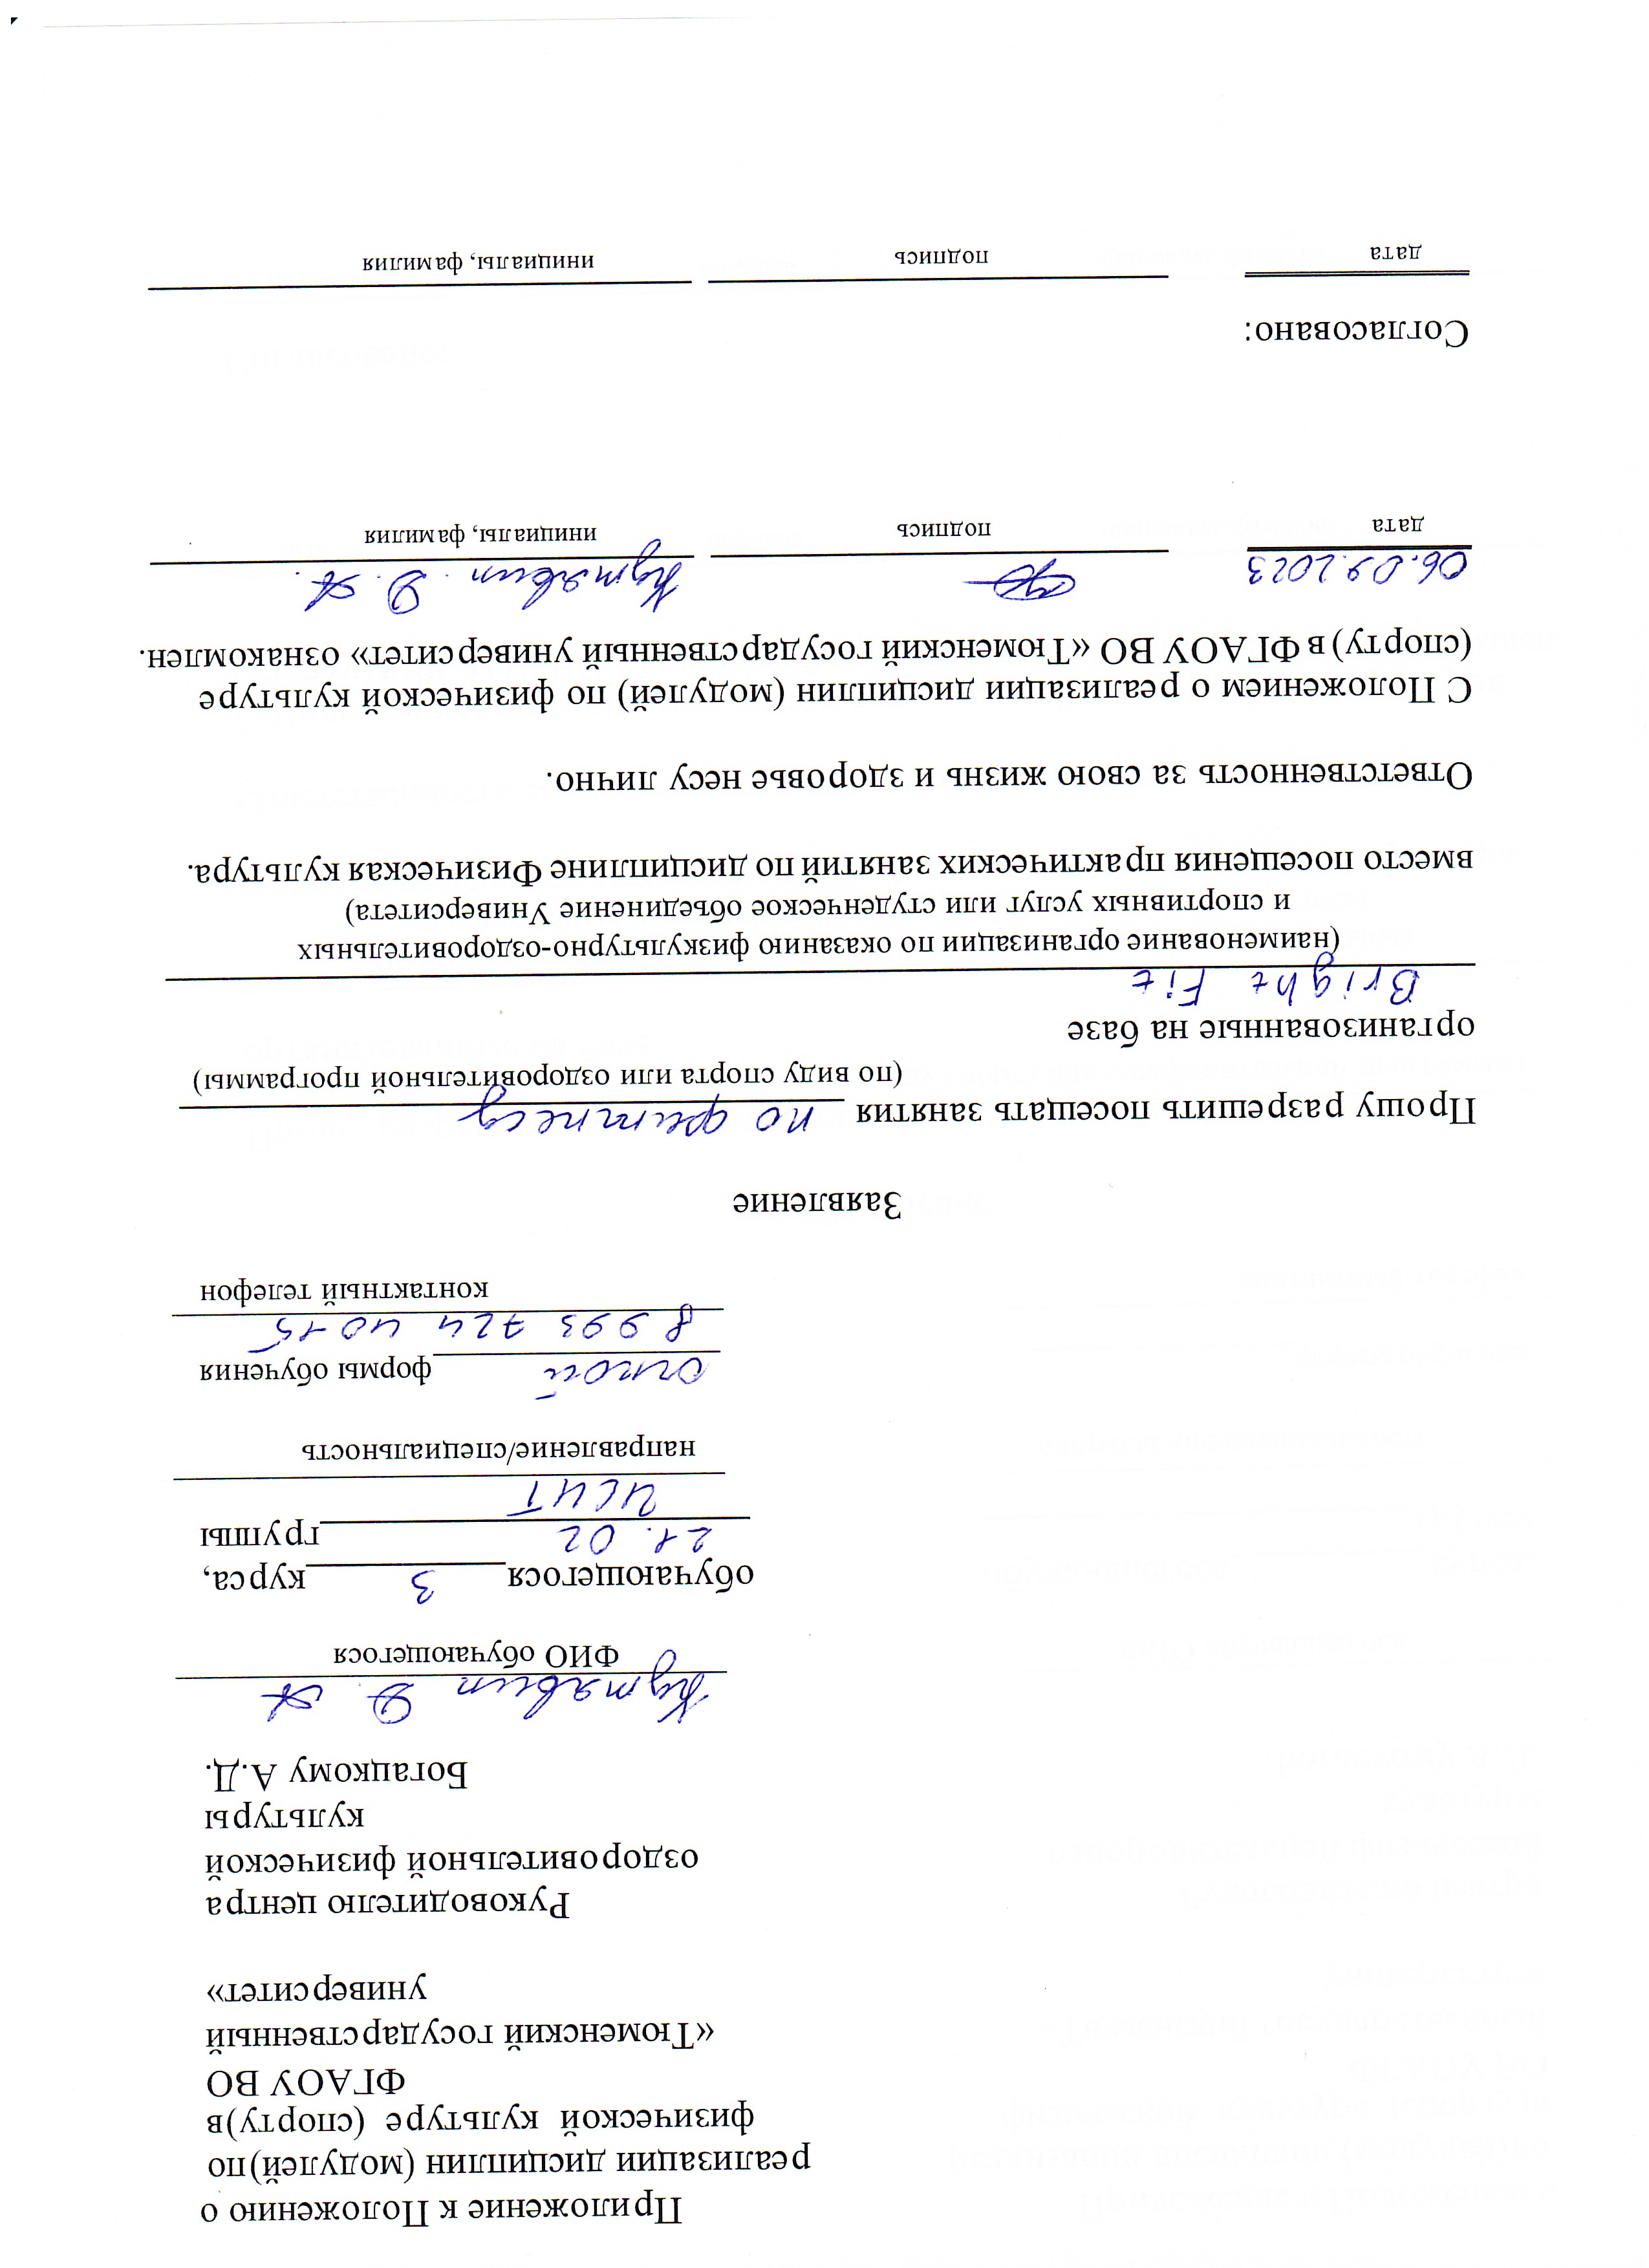 Приложение к Положению о
реализации дисциплин (модулей)по
физической культуре (спорту)в
ФГАОУ ВО
«Тюменский государственный
университет»
Руководителю центра
оздоровительной физической
культуры
Богацкому А.Д.
Кутявин Д. А
ФИО обучающегося
обучающегося 3 курса,
21. 02 группы
ИСИТ
направление/специальность
очной формы обучения
8 993 724 40 15
контактный телефон
Заявление
Прошу разрешить посещать занятия по фитнесу
(по виду спорта или оздоровительной программы)
организованные на базе
Bright Fit
(наименование организации по оказанию физкультурно-оздоровительных
и спортивных услуг или студенческое объединение Университета)
вместо посещения практических занятий по дисциплине Физическая культура.
Ответственность за свою жизнь и здоровье несу лично.
С Положением о реализации дисциплин (модулей) по физической культуре
(спорту) в ФГАОУ ВО «Тюменский государственный университет» ознакомлен.
06.09.2023 Кутявин. Д. А.
дата подпись инициалы, фамилия
Согласовано:
дата подпись инициалы, фамилия